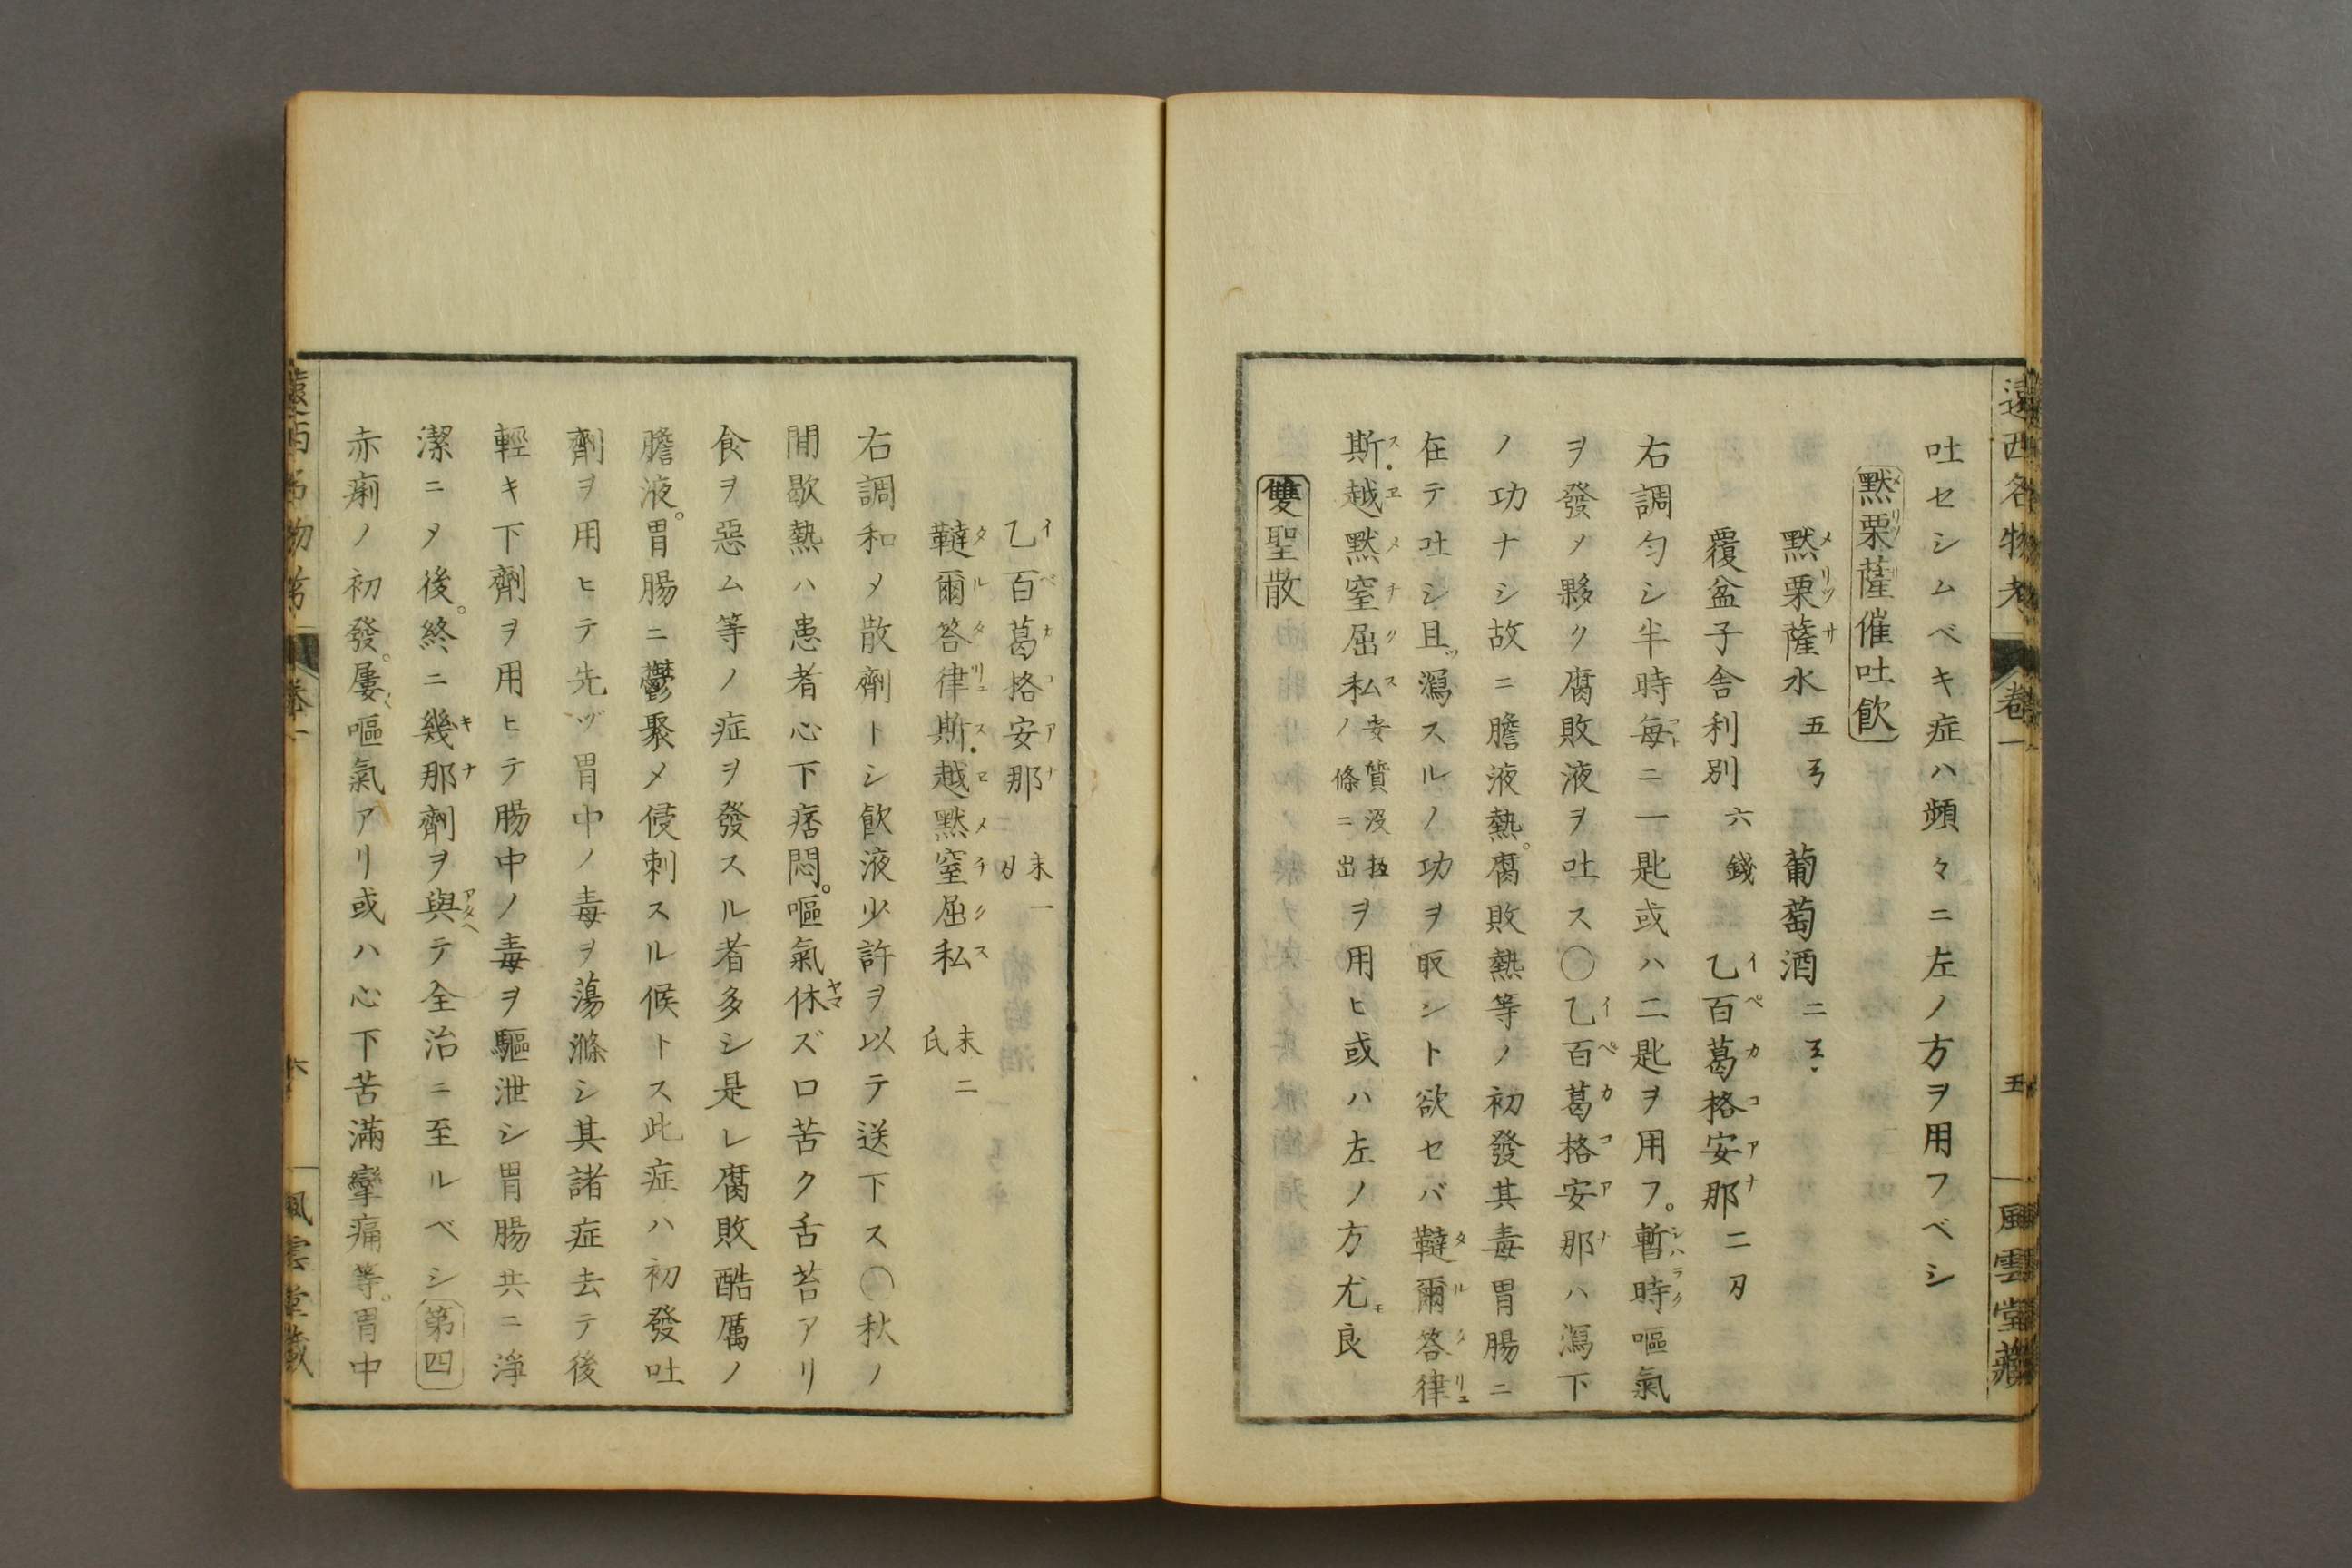 遠西名物考 卷一 五 風雲堂藏
吐セシムベキ症ハ頻々ニ左ノ方ヲ用フベシ
默栗薩催吐飲
默栗薩水 五弓 葡萄酒 二
覆盆子舎利別 六錢 乙百葛格安那 二刄
右調勻シ半時每ニ一匙或ハ二匙ヲ用フ。暫時嘔氣
ヲ發メ夥ク腐敗液ヲ吐ス○乙百葛格安那ハ瀉下
ノ功ナシ故ニ膽液熱。腐敗熱等ノ初發其毒胃腸ニ
在テ吐シ且ツ瀉スルノ功ヲ取ント欲セバ韃爾答律
斯.越默窒屈私ノ安質没扭條ニ出ヲ用ヒ或ハ左ノ方尤モ良
雙聖散
乙百葛格安那 末一刄
韃爾答律斯.越默窒屈私 末二氏
右調和メ散劑トシ飲液少許ヲ以テ送下ス○秋ノ
間歇熱ハ患者心下痞悶。嘔氣休ズ口苦ク舌苔アリ
食ヲ惡ム等ノ症ヲ發スル者多シ是レ腐敗酷厲ノ
膽液。胃腸ニ鬱聚メ侵刺スル候トス此症ハ初發吐
劑ヲ用ヒテ先ヅ胃中ノ毒ヲ蕩滌シ其諸症去テ後
輕キ下劑ヲ用ヒテ腸中ノ毒ヲ驅泄シ胃腸共ニ淨
潔ニメ後。終ニ幾那劑ヲ與テ全治ニ至ルベシ第四
赤痢ノ初發。屢〻嘔氣アリ或ハ心下苦滿攣痛等。胃中
遠西名物考 卷一 六 風雲堂藏